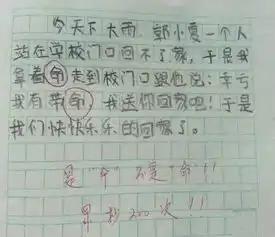 今天下大雨,郭小雯一个人
站在学校门口回不了家,于是我
拿着命走到校门口跟他说:幸亏
我有带命,我送你回家吧!于是
我们快快乐乐的回家了。
是“伞”不是“命”!!
罚抄200次!!